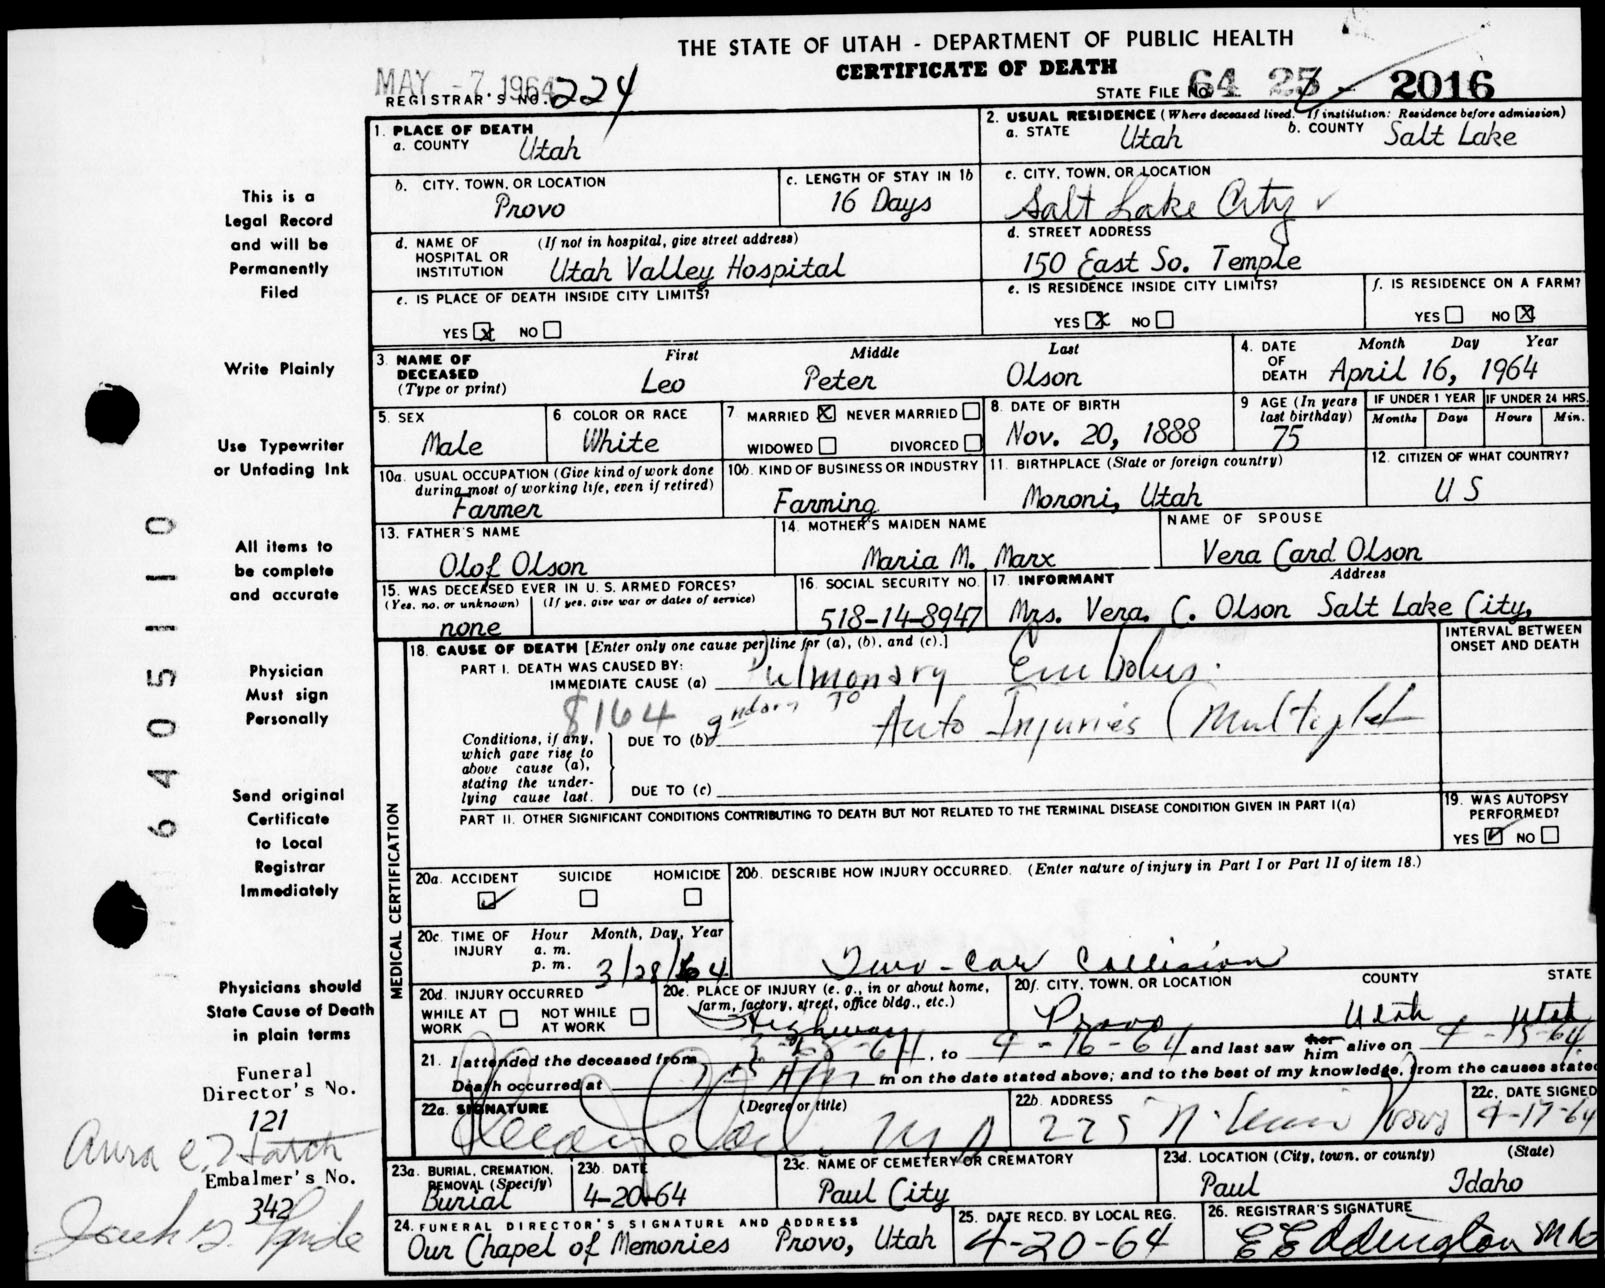 THE STATE OF UTAH - DEPARTMENT OF PUBLIC HEALTH
CERTIFICATE OF DEATH
MAY -7 1964
REGISTRAR'S NO. 224
STATE FILE NO. 64 25 - 2016
This is a
Legal Record
and will be
Permanently
Filed
Write Plainly
Use Typewriter
or Unfading Ink
All items to
be complete
and accurate
Physician
Must sign
Personally
Send original
Certificate
to Local
Registrar
Immediately
Physicians should
State Cause of Death
in plain terms
Funeral
Director's No.
121
Embalmer's No.
342
6405110
1. PLACE OF DEATH
a. COUNTY Utah
2. USUAL RESIDENCE (Where deceased lived. If institution: Residence before admission)
a. STATE Utah b. COUNTY Salt Lake
b. CITY, TOWN, OR LOCATION Provo
c. LENGTH OF STAY IN 1b 16 Days
c. CITY, TOWN, OR LOCATION Salt Lake City
d. NAME OF HOSPITAL OR INSTITUTION (If not in hospital, give street address) Utah Valley Hospital
d. STREET ADDRESS 150 East So. Temple
e. IS PLACE OF DEATH INSIDE CITY LIMITS? YES X NO
e. IS RESIDENCE INSIDE CITY LIMITS? YES X NO
f. IS RESIDENCE ON A FARM? YES NO X
3. NAME OF DECEASED (Type or print) First Middle Last
Leo Peter Olson
4. DATE OF DEATH Month Day Year
April 16, 1964
5. SEX Male
6 COLOR OR RACE White
7 MARRIED X NEVER MARRIED WIDOWED DIVORCED
8. DATE OF BIRTH Nov. 20, 1888
9 AGE (In years last birthday) 75
IF UNDER 1 YEAR Months Days
IF UNDER 24 HRS. Hours Min.
10a. USUAL OCCUPATION (Give kind of work done during most of working life, even if retired) Farmer
10b. KIND OF BUSINESS OR INDUSTRY Farming
11. BIRTHPLACE (State or foreign country) Moroni, Utah
12. CITIZEN OF WHAT COUNTRY? US
13. FATHER'S NAME Olof Olson
14. MOTHER'S MAIDEN NAME Maria M. Marx
NAME OF SPOUSE Vera Card Olson
15. WAS DECEASED EVER IN U. S. ARMED FORCES? (Yes, no, or unknown) (If yes, give war or dates of service) none
16. SOCIAL SECURITY NO. 518-14-8947
17. INFORMANT Address
Mrs. Vera. C. Olson Salt Lake City,
MEDICAL CERTIFICATION
18. CAUSE OF DEATH [Enter only one cause per line for (a), (b), and (c).]
INTERVAL BETWEEN ONSET AND DEATH
PART I. DEATH WAS CAUSED BY:
IMMEDIATE CAUSE (a) Pulmonary Embolus
8164
Conditions, if any, which gave rise to above cause (a), stating the underlying cause last.
DUE TO (b) Auto Injuries (Multiple)
DUE TO (c)
PART II. OTHER SIGNIFICANT CONDITIONS CONTRIBUTING TO DEATH BUT NOT RELATED TO THE TERMINAL DISEASE CONDITION GIVEN IN PART I(a)
19. WAS AUTOPSY PERFORMED? YES ✓ NO
20a. ACCIDENT ✓ SUICIDE HOMICIDE
20b. DESCRIBE HOW INJURY OCCURRED. (Enter nature of injury in Part I or Part II of item 18.)
Two-car Collision
20c. TIME OF INJURY Hour a. m. p. m. Month, Day, Year 3/28/64
20d. INJURY OCCURRED WHILE AT WORK NOT WHILE AT WORK
20e. PLACE OF INJURY (e. g., in or about home, farm, factory, street, office bldg., etc.) Highway
20f. CITY, TOWN, OR LOCATION COUNTY STATE
Provo Utah Utah
21. I attended the deceased from 3-28-64, to 4-16-64 and last saw her him alive on 4-15-64
Death occurred at m on the date stated above; and to the best of my knowledge, from the causes stated
22a. SIGNATURE (Degree or title) MD
22b. ADDRESS Provo
22c. DATE SIGNED 4-17-64
23a. BURIAL, CREMATION, REMOVAL (Specify) Burial
23b. DATE 4-20-64
23c. NAME OF CEMETERY OR CREMATORY Paul City
23d. LOCATION (City, town, or county) (State)
Paul Idaho
24. FUNERAL DIRECTOR'S SIGNATURE AND ADDRESS
Our Chapel of Memories Provo, Utah
25. DATE RECD. BY LOCAL REG. 4-20-64
26. REGISTRAR'S SIGNATURE
E E Eddington MD